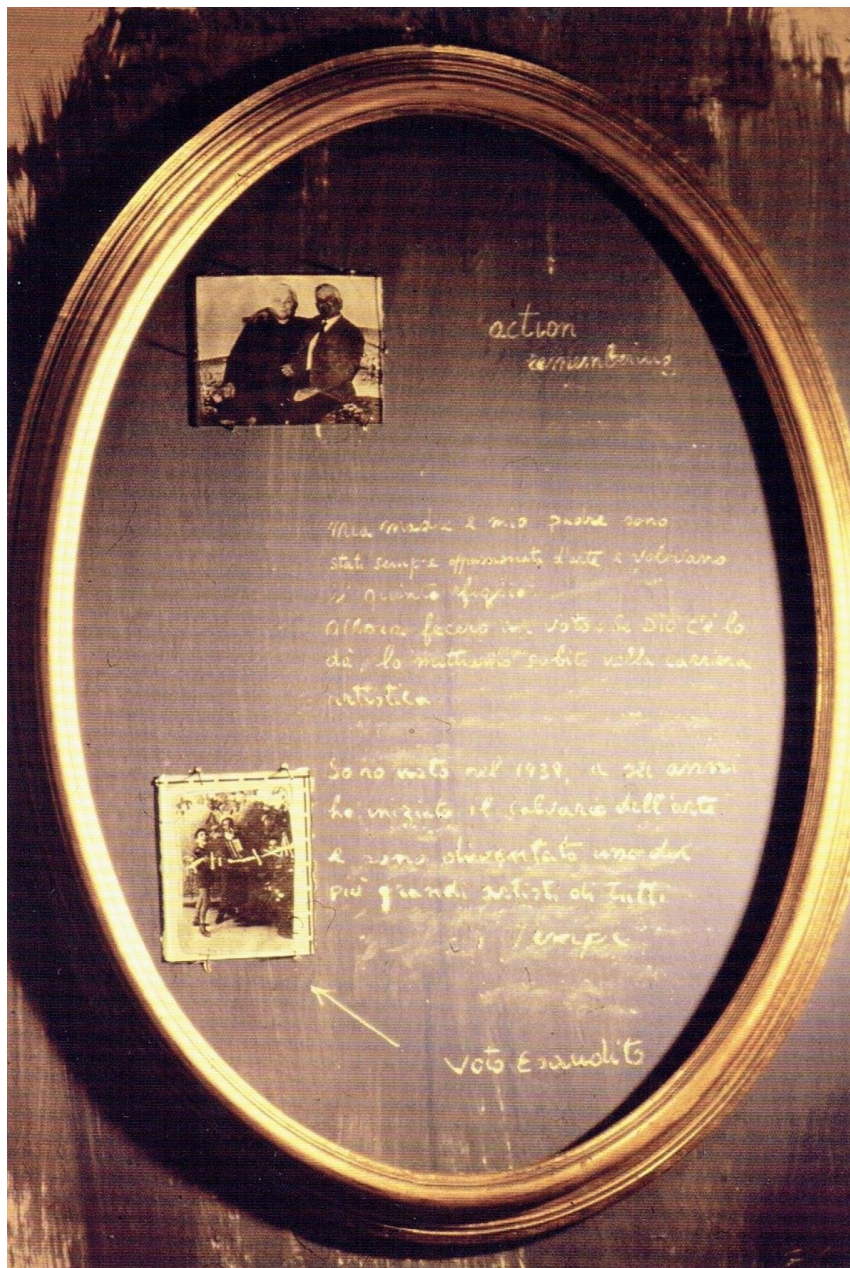 action
remembering
Mia madre e mio padre sono
stati sempre appassionati d'arte e volevano
il quinto figlio.
Allora fecero un voto: se DIO c'è lo
dà, lo mettiamo subito nella carriera
artistica.
Sono nato nel 1939, a sei anni
ho iniziato il calvario dell'arte
e sono diventato uno dei
più grandi artisti di tutti
i Tempi
Voto Esaudito